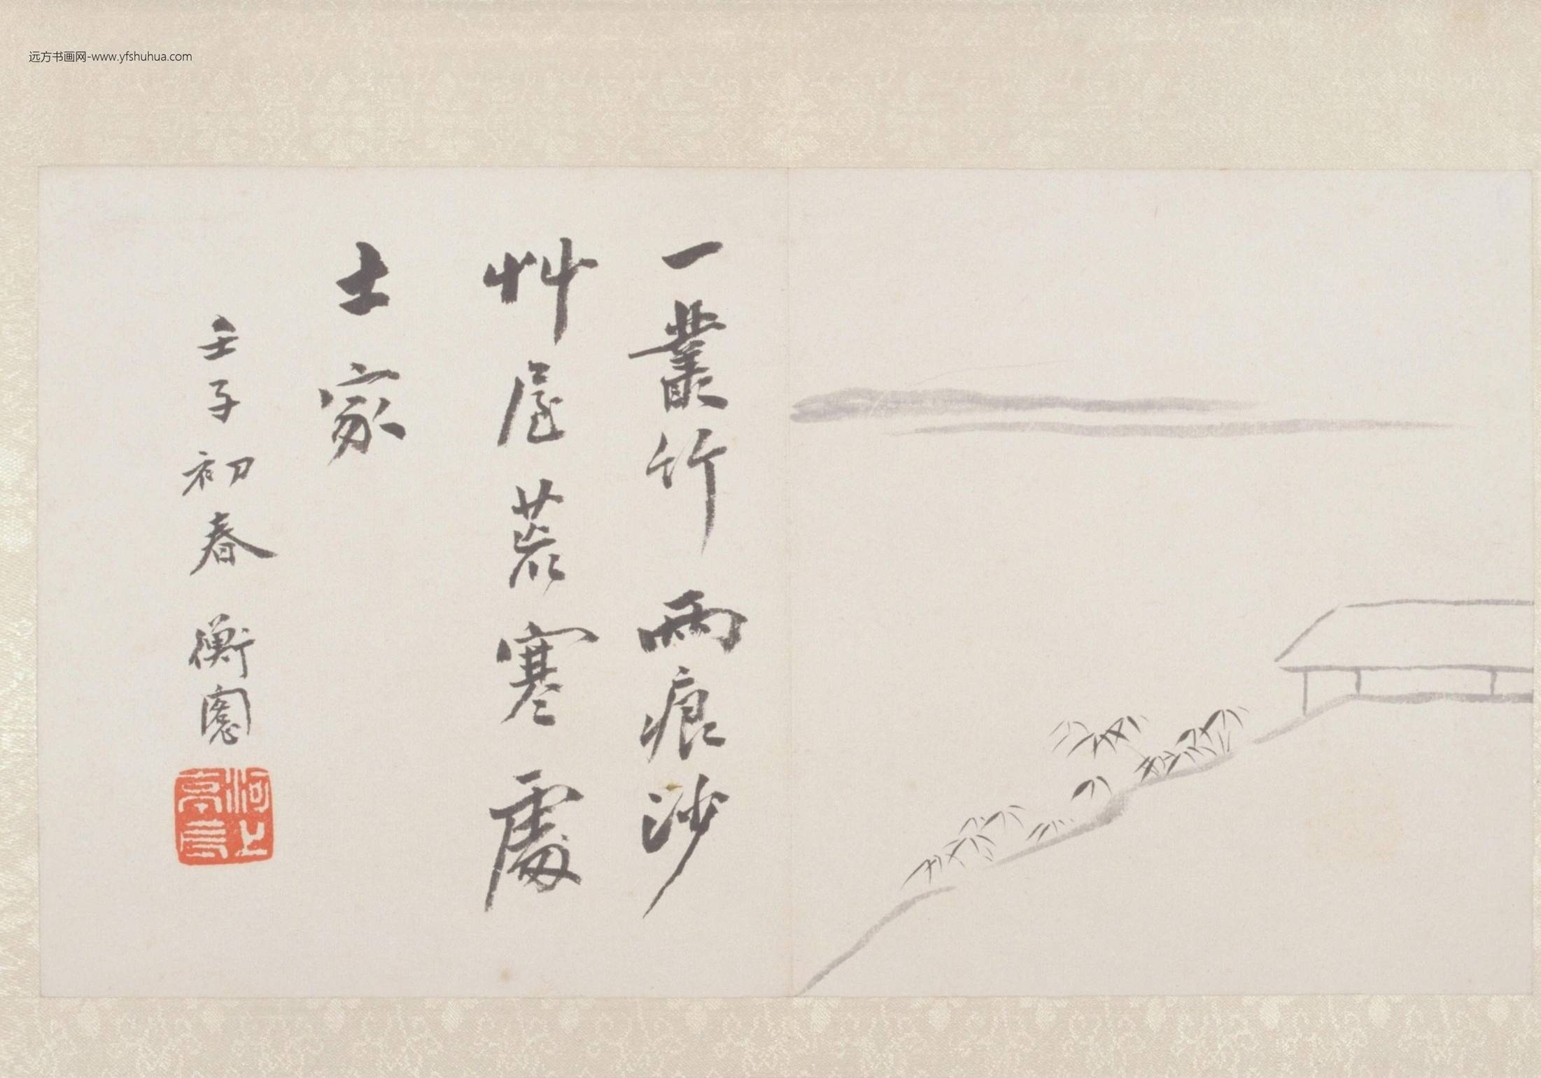 远方书画网-www.yfshuhua.com
一叢竹雨痕沙
艸屋荒寒處
士家
壬子初春 衡窗
河上